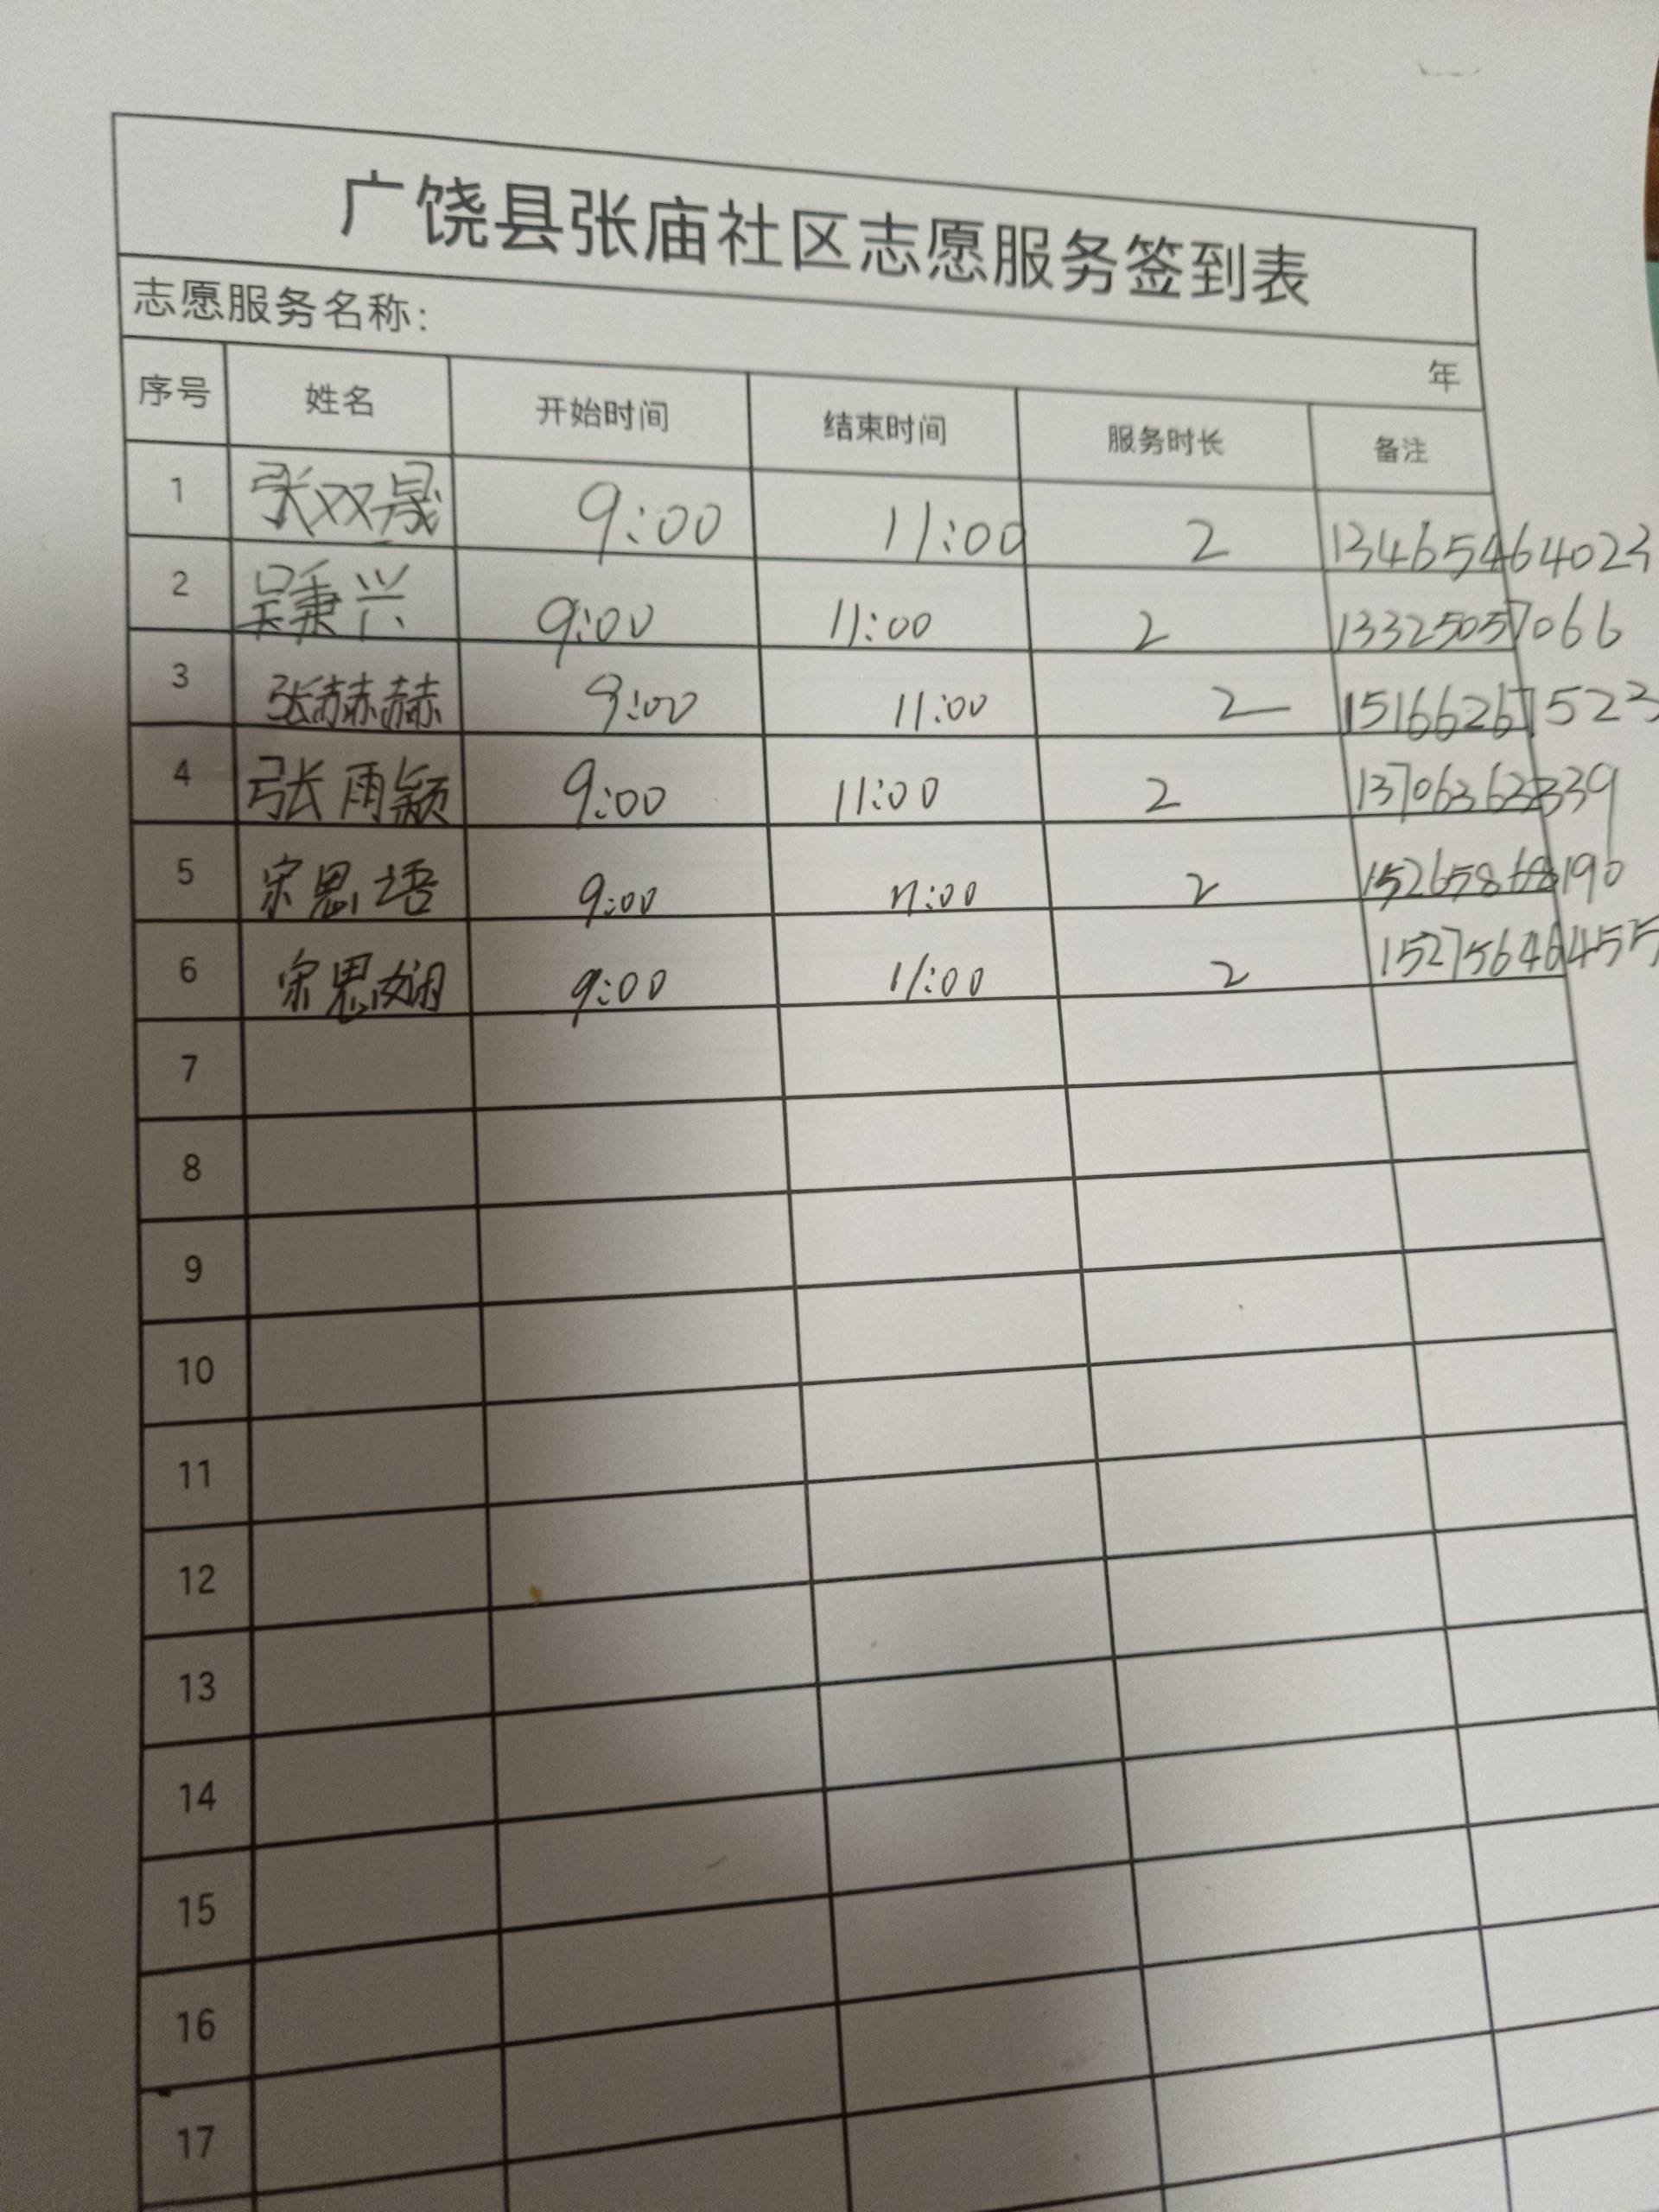 广饶县张庙社区志愿服务签到表
志愿服务名称：
年
序号 姓名 开始时间 结束时间 服务时长 备注
1 张双晟 9:00 11:00 2 13465464023
2 吴秉兴 9:00 11:00 2 13325057066
3 张赫赫 9:00 11:00 2 15166267523
4 张雨颖 9:00 11:00 2 13706363339
5 宋思语 9:00 11:00 2 15265868190
6 宋思娴 9:00 11:00 2 15275646455
7
8
9
10
11
12
13
14
15
16
17